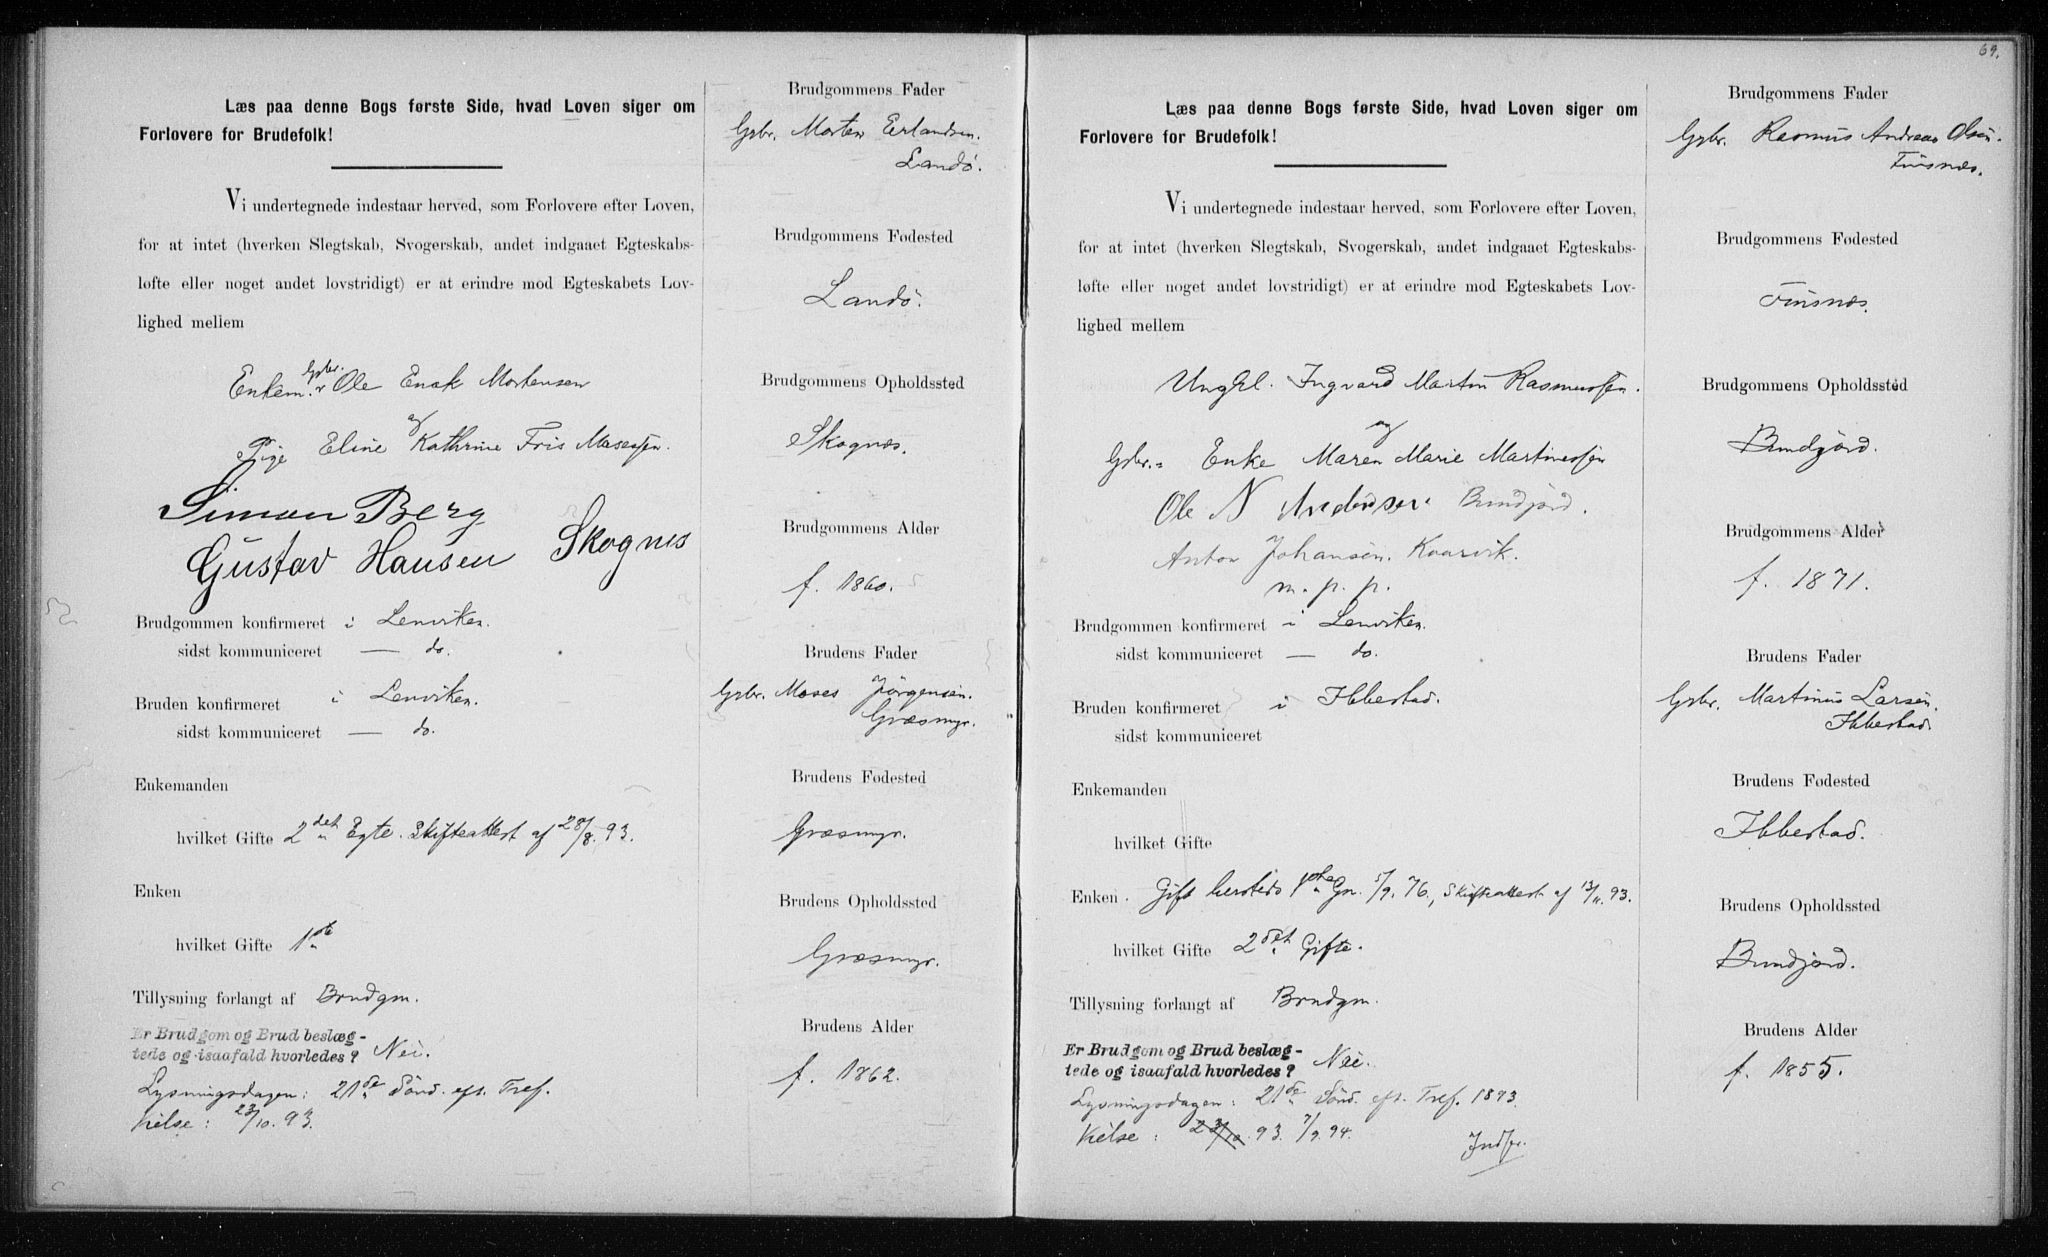 Læs paa denne Bogs første Side, hvad Loven siger om
Forlovere for Brudefolk!
Vi undertegnede indestaar herved, som Forlovere efter Loven,
for at intet (hverken Slegtskab, Svogerskab, andet indgaaet Egteskabs-
løfte eller noget andet lovstridigt) er at erindre mod Egteskabets Lov-
lighed mellem
Enkem. Gbr. Ole Enok Mortensen
og
Pige Eline Kathrine Fris Mosessen.
Simon Berg
Gustav Hansen Skognes
Brudgommen konfirmeret i Lenviken.
sidst kommuniceret — do.
Bruden konfirmeret i Lenviken.
sidst kommuniceret — do.
Enkemanden
hvilket Gifte 2det Egte. Skifteattest af 28/8. 93.
Enken
hvilket Gifte 1ste
Tillysning forlangt af Brudgm.
Er Brudgom og Brud beslæg-
tede og isaafald hvorledes? Nei.
Lysningsdagen: 21de Sønd. eft. Tref.
Vielse: 23/10. 93.
Brudgommens Fader
Gbr. Morten Erlandsen.
Landø.
Brudgommens Fødested
Landø.
Brudgommens Opholdssted
Skognæs.
Brudgommens Alder
f. 1860.
Brudens Fader
Gbr. Moses Jörgensen.
Græsmyr.
Brudens Fødested
Græsmyr.
Brudens Opholdssted
Græsmyr.
Brudens Alder
f. 1862.
69.
Læs paa denne Bogs første Side, hvad Loven siger om
Forlovere for Brudefolk!
Vi undertegnede indestaar herved, som Forlovere efter Loven,
for at intet (hverken Slegtskab, Svogerskab, andet indgaaet Egteskabs-
løfte eller noget andet lovstridigt) er at erindre mod Egteskabets Lov-
lighed mellem
Ungkl. Ingvard Martin Rasmussen.
og
Gbr.- Enke Maren Marie Martinussen
Ole N Andersen Bundjord.
Anton Johansen. Kaarvik.
m. p. p.
Brudgommen konfirmeret i Lenviken.
sidst kommuniceret — do.
Bruden konfirmeret i Ibbestad.
sidst kommuniceret
Enkemanden
hvilket Gifte
Enken. Gift hersteds 1ste Gn. 5/9. 76, Skifteattest af 13/11. 93.
hvilket Gifte 2det Gifte.
Tillysning forlangt af Brudgm.
Er Brudgom og Brud beslæg-
tede og isaafald hvorledes? Nei.
Lysningsdagen: 21de Sønd. eft. Tref. 1893.
Vielse: 23/10 93. 7/9. 94.
Indfr.
Brudgommens Fader
Gbr. Rasmus Andreas Olsen.
Finsnæs.
Brudgommens Fødested
Finsnæs.
Brudgommens Opholdssted
Bundjord.
Brudgommens Alder
f. 1871.
Brudens Fader
Gbr. Martinus Larsen.
Ibbestad.
Brudens Fødested
Ibbestad.
Brudens Opholdssted
Bundjord.
Brudens Alder
f. 1855.